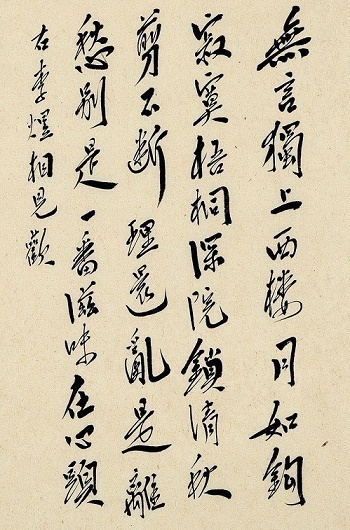 無言獨上西楼月如鈎
寂寞梧桐深院鎖清秋
剪不断理還亂是離
愁别是一番滋味在心頭
右李煜相見歡